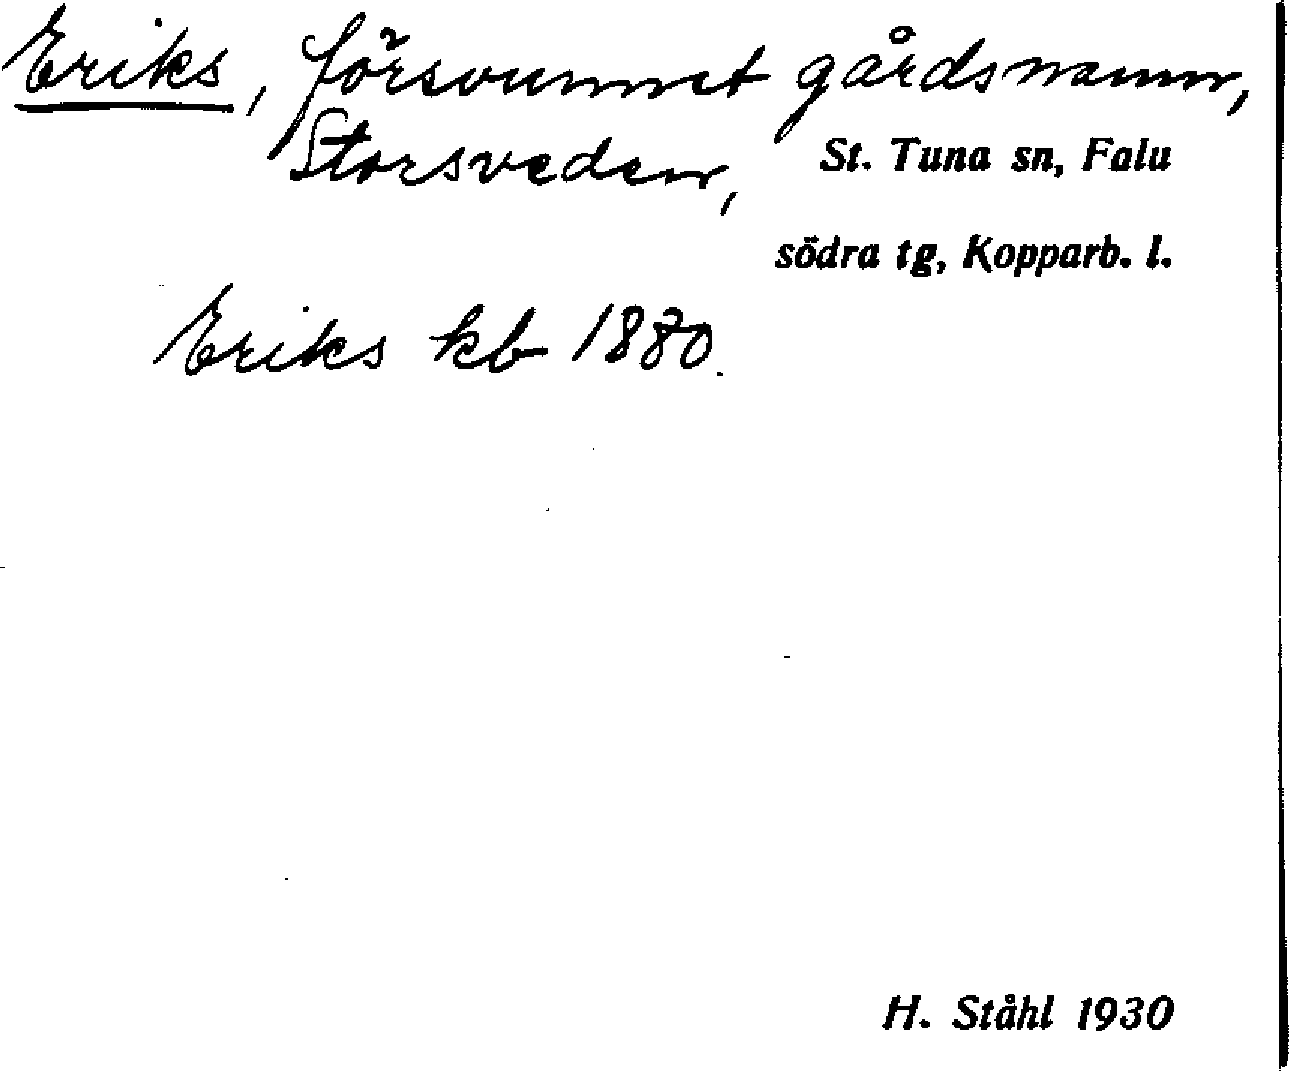 Eriks, försvunnet gårdsnamn,
Storsveden, St. Tuna sn, Falu
södra tg, Kopparb. l.
Eriks kb 1880.
H. Ståhl 1930